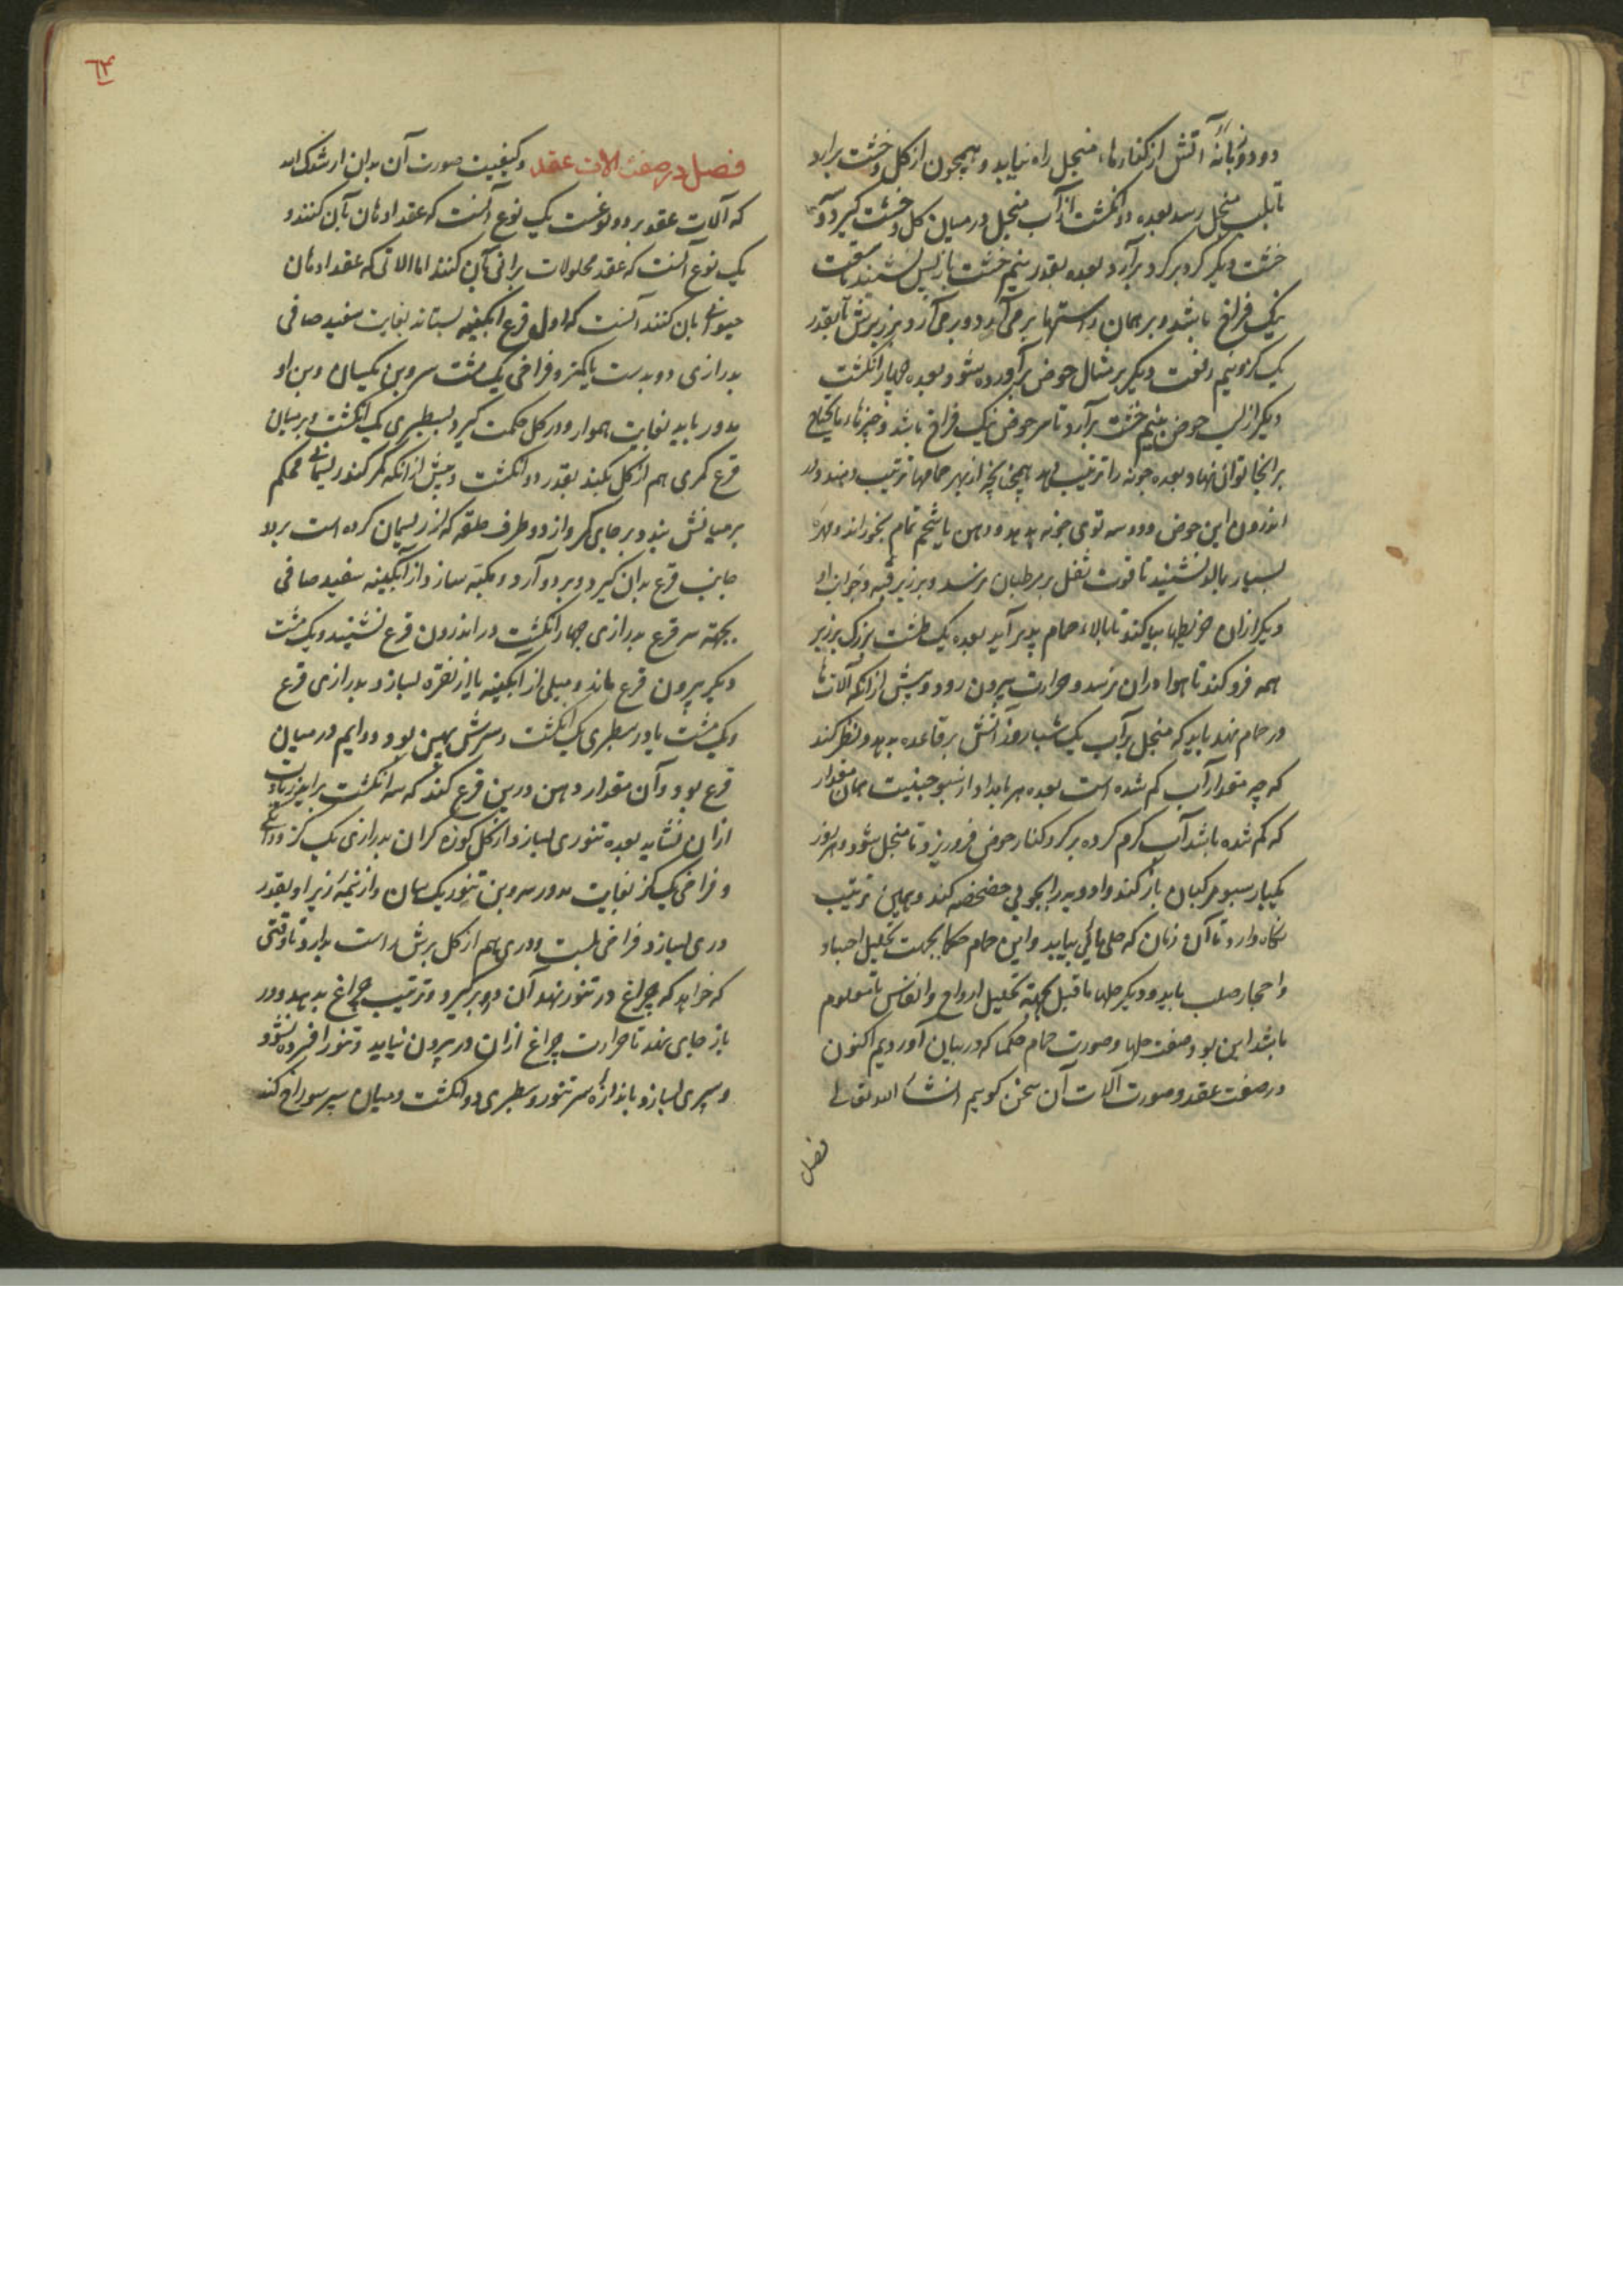 دود و زبانهٔ آتش از کنارهاء منجل راه نیابد و همچون از کل و خشت برارد
تا بلب منجل رسد بعده دو انکشت از آب منجل در میان کل و خشت کیرد و
خشت دیکر کرد بر کرد برآرد بعده بقدر نیم خشت باز پس نشیند تا سقف
نیک فراخ باشد و بر همان راستیها بر می آرد و بر می آرد و بر زبرش تا بقدر
یک کز و نیم رفعت دیکر بر مثال حوض برآورده شود بعده چهار انکشت
دیکر از لب حوض بنیم خشت برآرد تا سر حوض نیک فراخ باشد و چیزهاء
برانجا توان نهاد بعده جونه را ترتیب دهد همچنانچه از بهر حمامها ترتیب دهند و در
اندرون این حوض دو سه توی جونه بدهد و دهن یا شحم تمام بخوراند و مهره
بسیار بمالد تا قوت ثفل بر رطبان نرسد و بر زیر قبه و خرابی او
دیکر ازان خریطها بیاکند تا بالاء حمام پدیر آید بعده یک طشت بزرک بر زبر
همه فرو کند تا هوا دران نرسد و حرارت بیرون رود و پیش از انکه آلات ها
در حمام نهد باید که منجل پر آب یک شبا روز آتش بر قاعده بدهد و نظر کند
که چه مقدار آب کم شده است بعده هر بامداد از سبو همان مقدار
که کم شده باشد آب کرم کرده بر کرد کنار حوض فرو ریزد تا منجل شود و هر روز
یکبار سبو مرکبان باز کند و ادویه را بچوبی خضخضه کند و بهمین ترتیب
نکاه دارد تا آن زمان که حل پاکی بیابد و این حمام حکما بجهت تحلیل اجساد
و احجار صلب باید و دیکر حلها ما قبل بجهته تحلیل ارواح و انفاس تا معلوم
باشد این بود صفت حلها و صورت حمام حکما که در بیان آوردیم اکنون
در صفت عقد و صورت آلات آن سخن کوییم انشاء الله تعالی
فصل
٦٣
فصل در صفت الات عقد و کیفیت صورت آن بدان ارشدک الله
که آلات عقد بر دو نوعست یک نوع آنست که عقد ادهان بآن کنند و
یک نوع آنست که عقد محلولات برانی بآن کنند اما الاتی که عقد ادهان
حیوانی بان کنند آنست که اول قرع ابکینه بستاند بغایت سفید صافی
بدرازی دو بدست یا کمتر و فراخی یک مشت سر و بن یکسان و بن او
مدور باید بغایت هموار و در کل حکمت کیرد بسطبری یک انکشت و بر میان
قرع کمری هم از کل بکند بقدر دو انکشت و پیش از انکه کمر کند ریسمانی محکم
بر میانش بندد بر جای کمر و از دو طرف حلقه که از ریسمان کرده است بر دو
جانب قرع بدان کیرد و بر دو آرد و مکبه سازد از آبکینه سفید صافی
بجهته سر قرع بدرازی چهار انکشت در اندرون قرع نشیند و یک مشت
دیکر بیرون قرع ماند و میلی از ابکینه یا از نقره بسازد بدرازی قرع
و یک مشت یا در سطبری یک انکشت و سرش پهین بود و دوایم در میان
قرع بود و آن مقدار دهن درین قرع کند که سه انکشت برآید زیادت
ازان نشاید بعده تنوری بسازد از کل کوزه کران بدرازی یک کز و دانکی
و فراخی یک کز بغایت مدور سر و بن تنور یک سان و از نیمهٔ زیر او بقدر
دری بسازد فراخی بلست و دری هم از کل برش راست بدارد تا وقتی
که خواهد که چراغ در تنور نهد آن در بر کیرد و ترتیب چراغ بدهد و در
باز جای نهد تا حرارت چراغ ازان در بیرون نیاید و تنور افسرده نشود
و سپری بسازد باندازهٔ سر تنور و سطبری دو انکشت و میان سپر سوراخ کند